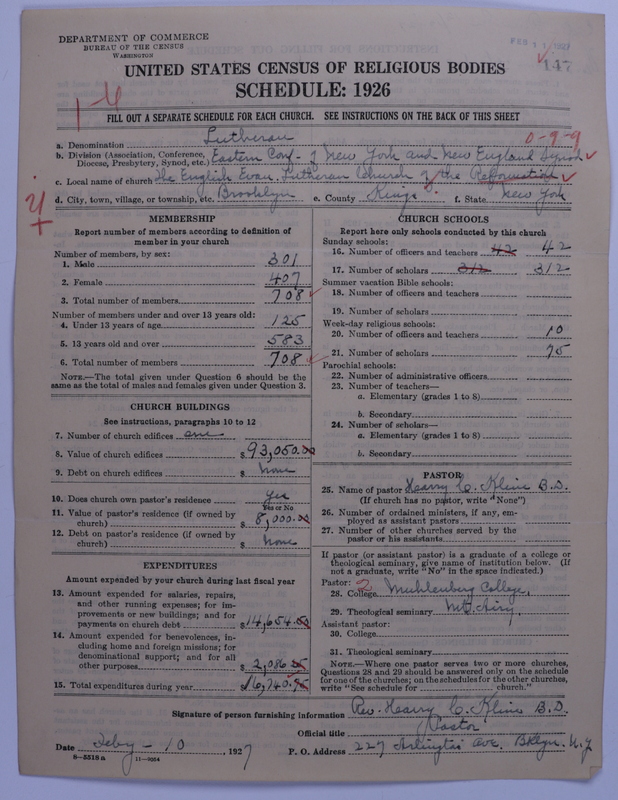 DEPARTMENT OF COMMERCE
BUREAU OF THE CENSUS
WASHINGTON
FEB 11 1927
147
UNITED STATES CENSUS OF RELIGIOUS BODIES
SCHEDULE: 1926
1-4
FILL OUT A SEPARATE SCHEDULE FOR EACH CHURCH. SEE INSTRUCTIONS ON THE BACK OF THIS SHEET
0-9-9
a. Denomination Lutheran
b. Division (Association, Conference, Diocese, Presbytery, Synod, etc.) Eastern Conf- of New York and New England Synod
c. Local name of church The English Evan. Lutheran Church of the Reformation
d. City, town, village, or township, etc. Brooklyn e. County Kings f. State New York
MEMBERSHIP
Report number of members according to definition of member in your church
Number of members, by sex:
1. Male 301
2. Female 407
3. Total number of members 708
Number of members under and over 13 years old:
4. Under 13 years of age 125
5. 13 years old and over 583
6. Total number of members 708
NOTE.—The total given under Question 6 should be
same as the total of males and females given under Question 3.
CHURCH BUILDINGS
See instructions, paragraphs 10 to 12
7. Number of church edifices one
8. Value of church edifices $93,050.00
9. Debt on church edifices $ None
10. Does church own pastor's residence yes
Yes or No
11. Value of pastor's residence (if owned by church) $ 8,000.00
12. Debt on pastor's residence (if owned by church) $ None
EXPENDITURES
Amount expended by your church during last fiscal year
13. Amount expended for salaries, repairs,
and other running expenses; for im-
provements or new buildings; and for
payments on church debt $14,654.50
14. Amount expended for benevolences, in-
cluding home and foreign missions; for
denominational support; and for all
other purposes $2,086.45
15. Total expenditures during year $16,740.95
CHURCH SCHOOLS
Report here only schools conducted by this church
Sunday schools:
16. Number of officers and teachers 42 42
17. Number of scholars 312 312
Summer vacation Bible schools:
18. Number of officers and teachers
19. Number of scholars
Week-day religious schools:
20. Number of officers and teachers 10
21. Number of scholars 75
Parochial schools:
22. Number of administrative officers
23. Number of teachers—
a. Elementary (grades 1 to 8)
b. Secondary
24. Number of scholars—
a. Elementary (grades 1 to 8)
b. Secondary
PASTOR
25. Name of pastor Harry C. Kline B.D.
(If church has no pastor, write "None")
26. Number of ordained ministers, if any, em-
ployed as assistant pastors
27. Number of other churches served by the
pastor or his assistants
If pastor (or assistant pastor) is a graduate of a college or
theological seminary, give name of institution below. (If
not a graduate, write "No" in the space indicated.)
Pastor: 2
28. College Muhlenberg College,
29. Theological seminary Mt. Airy
Assistant pastor:
30. College
31. Theological seminary
NOTE.—Where one pastor serves two or more churches,
Questions 28 and 29 should be answered only on the schedule
for one of the churches; on the schedules for the other churches,
write "See schedule for church."
Signature of person furnishing information Rev. Harry C. Kline B.D.
Official title Pastor
Date Feby - 10 1927 P. O. Address 227 Arlington Ave. Bklyn. N.Y
8—5518 a 11—9064